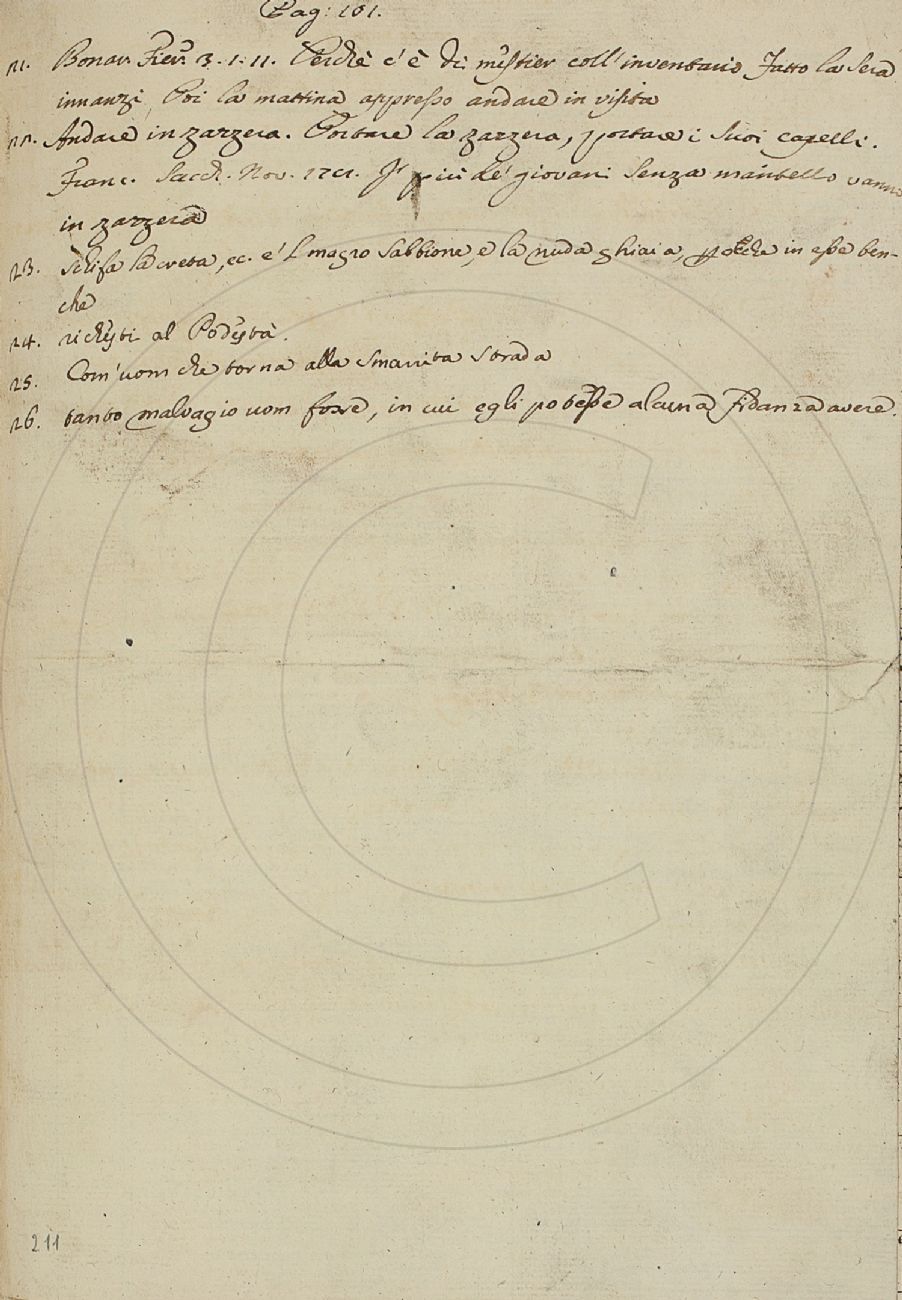 Pag: 101.
21. Buonar. Fier. 3. 1. 11. Perchè c'è di mestier coll'inventario Fatto la sera
innanzi, Poi la mattina appresso andare in visita
22. Andare in zazzera. Portare la zazzera, portare i suoi capelli.
Franc. Sacch. Nov. I più de' giovani senza mantello vanno
in zazzera
23. schifa la creta, ec. e 'l magro sabbione, e la nuda ghiaia, perchè in esse ben-
chè
24. richiesti al Podestà.
25. Com'uom che torna alla smarrita strada
26. tanto malvagio uom fosse, in cui egli potesse alcuna fidanza avere.
211